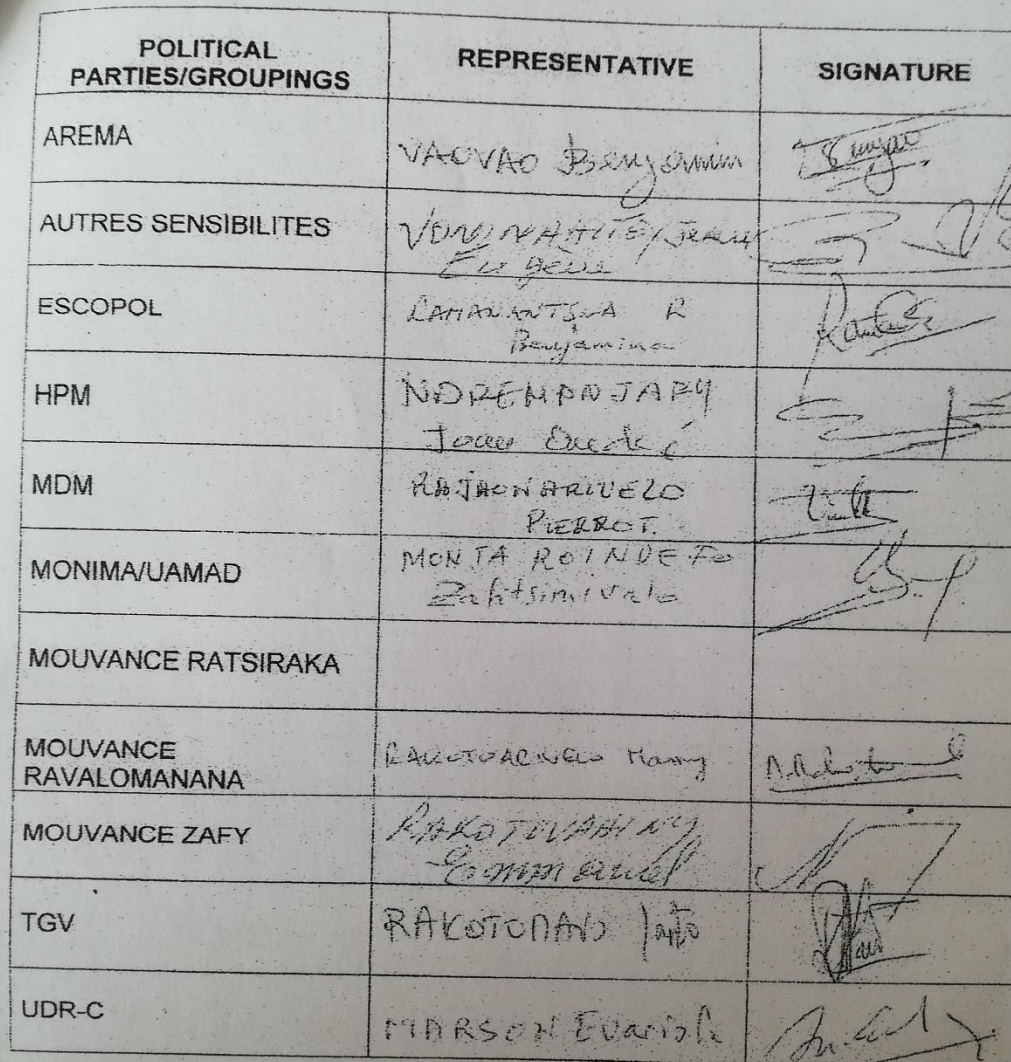 POLITICAL
PARTIES/GROUPINGS
REPRESENTATIVE
SIGNATURE
AREMA
VAOVAO Benjamin
AUTRES SENSIBILITES
VONINAHITSY Jean
Eugène
ESCOPOL
RAMANANTSOA R
Benjamina
HPM
NDREMANJARY
Jean André
MDM
RAJAONARIVELO
PIERROT.
MONIMA/UAMAD
MONJA ROINDEFO
Zafitsimivalo
MOUVANCE RATSIRAKA
MOUVANCE
RAVALOMANANA
RAKOTOARIVELO Mamy
MOUVANCE ZAFY
RAKOTOVAHINY
Emmanuel
TGV
RAKOTOMAVO
UDR-C
MARSON Evariste